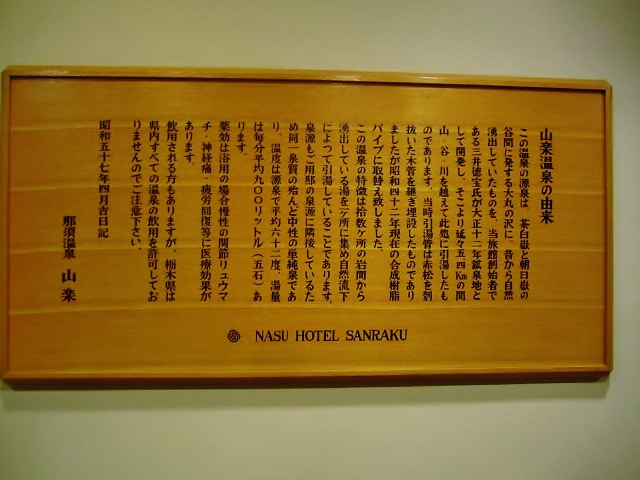 山楽温泉の由来
この温泉の源泉は、茶臼嶽と朝日嶽の
谷間に発する大丸の沢に、昔から自然
湧出していたものを、当旅館創始者で
ある三井徳宝氏が大正十二年鉱泉地と
して開発し、そこより延々五・四Kmの間
山・谷・川を越えて此処に引湯したも
のであります。当時引湯管は赤松を刳
抜いた木管を継ぎ埋設したものであり
ましたが昭和四十二年現在の合成樹脂
パイプに取替え致しました。
この温泉の特徴は拾数ヶ所の岩間から
湧出している湯を一ヶ所に集め自然流下
によつて引湯していることであります。
泉源もご用邸の泉源に隣接しているた
め同一泉質の殆んど中性の単純泉であ
り、温度は源泉で平均六十二度、湯量
は毎分平均九〇〇リットル（五石）あ
ります。
薬効は浴用の場合慢性の関節リュウマ
チ・神経痛・疲労回復等に医療効果が
あります。
飲用される方もありますが、栃木県は
県内すべての温泉の飲用を許可してお
りませんのでご注意下さい。
昭和五十七年四月吉日記
那須温泉 山楽
NASU HOTEL SANRAKU